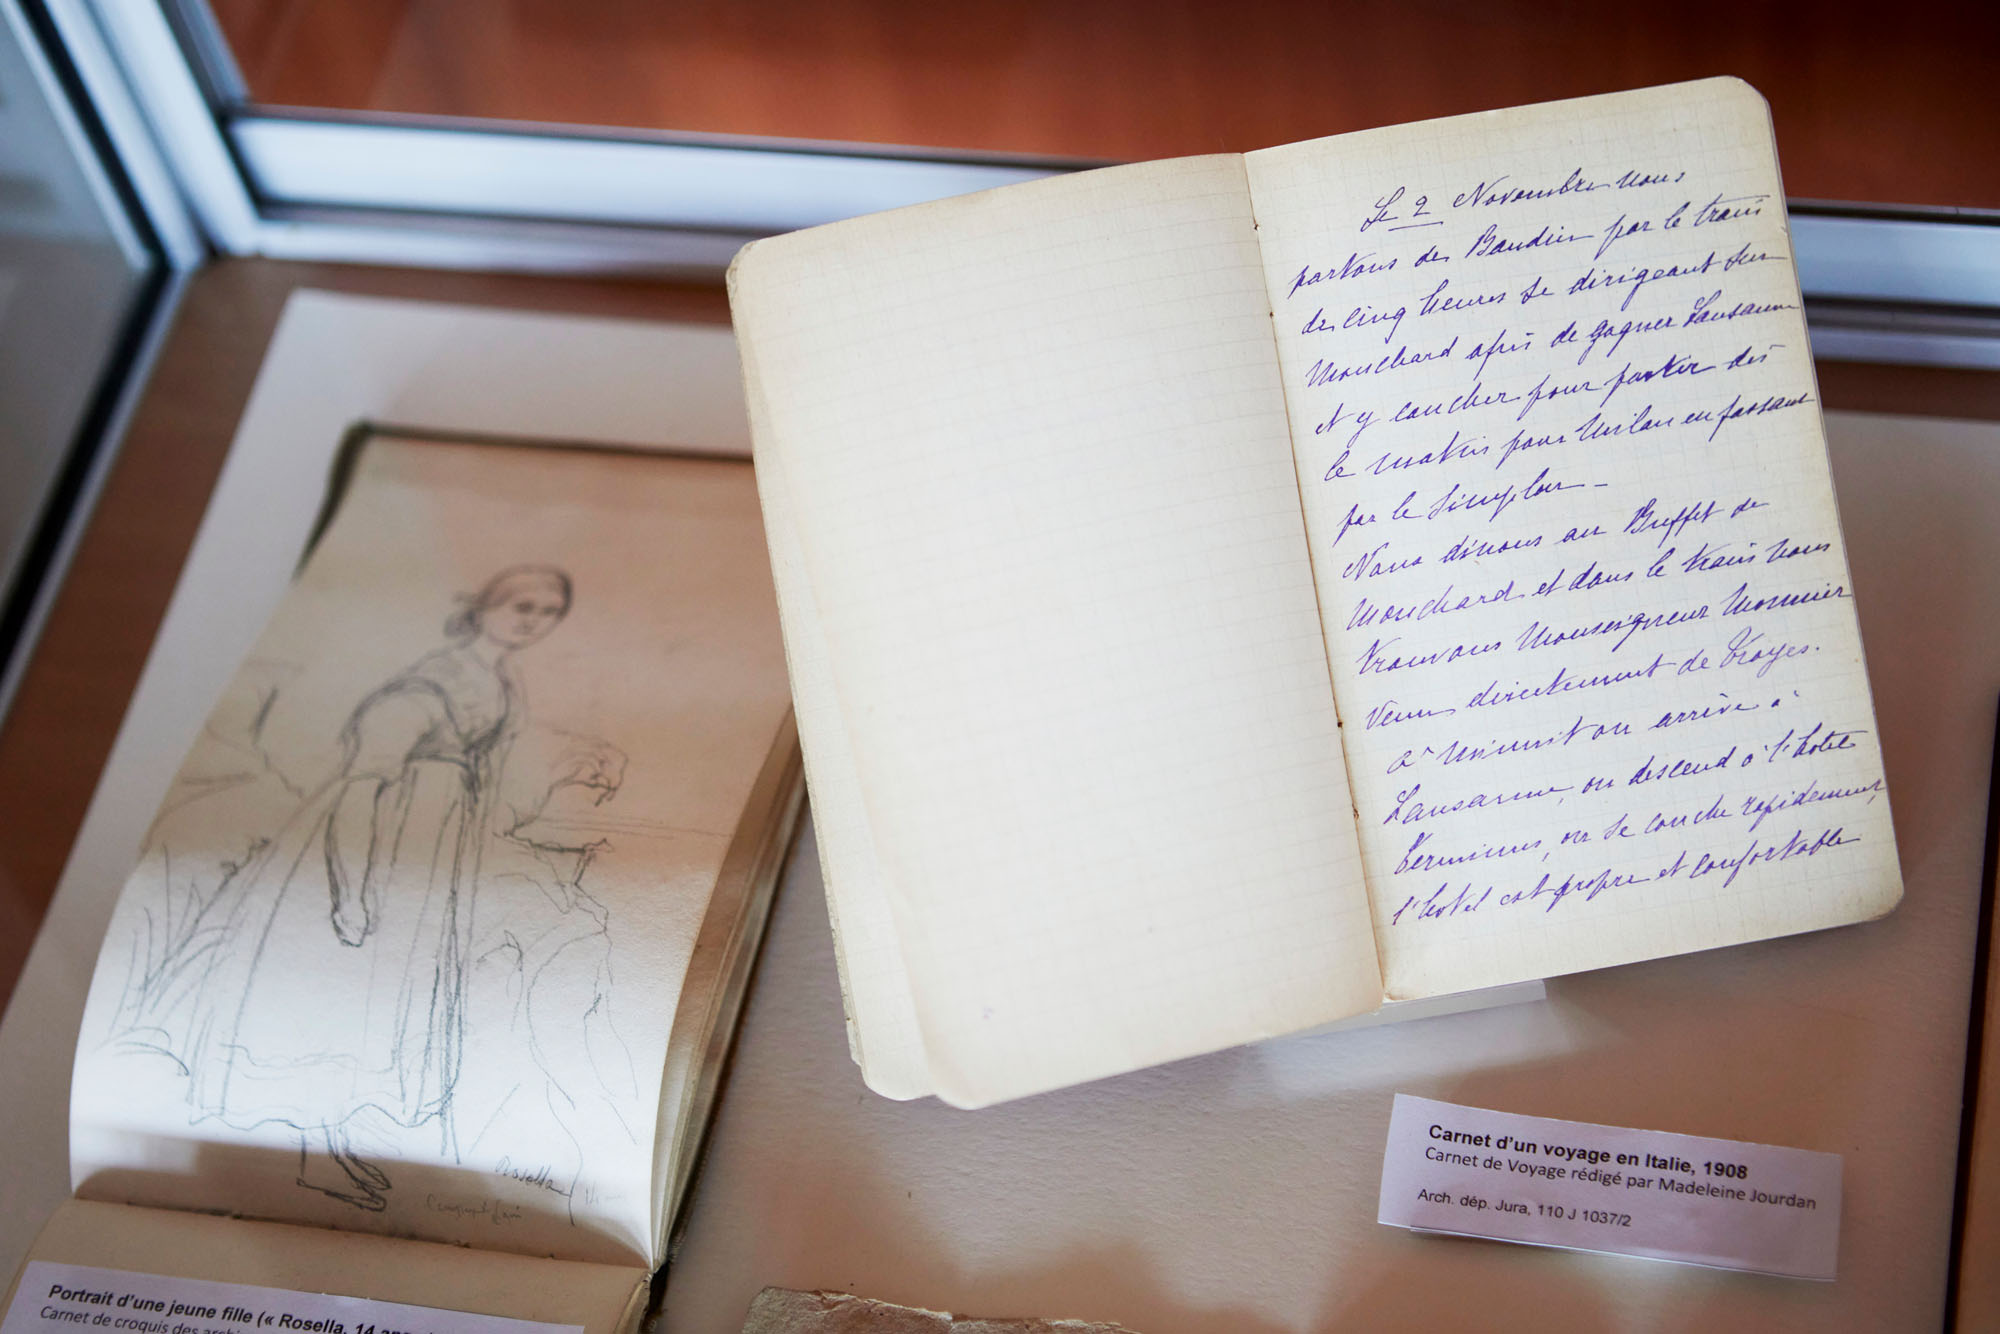 Le 2 Novembre nous
partons de Baudin par le train
de cinq heures se dirigeant sur
Mouchard afin de gagner Lausanne
et y coucher pour partir dès
le matin pour Milan en passant
par le Simplon –
Nous dînons au Buffet de
Mouchard et dans le train nous
trouvons Monseigneur Monnier
venu directement de Troyes.
à minuit on arrive à
Lausanne, on descend à l'hotel
Terminus, on se couche rapidement,
l'hotel est propre et confortable
Rosella
Carnet d'un voyage en Italie, 1908
Carnet de Voyage rédigé par Madeleine Jourdan
Arch. dép. Jura, 110 J 1037/2
Portrait d'une jeune fille (« Rosella, 14 ans
Carnet de croquis des